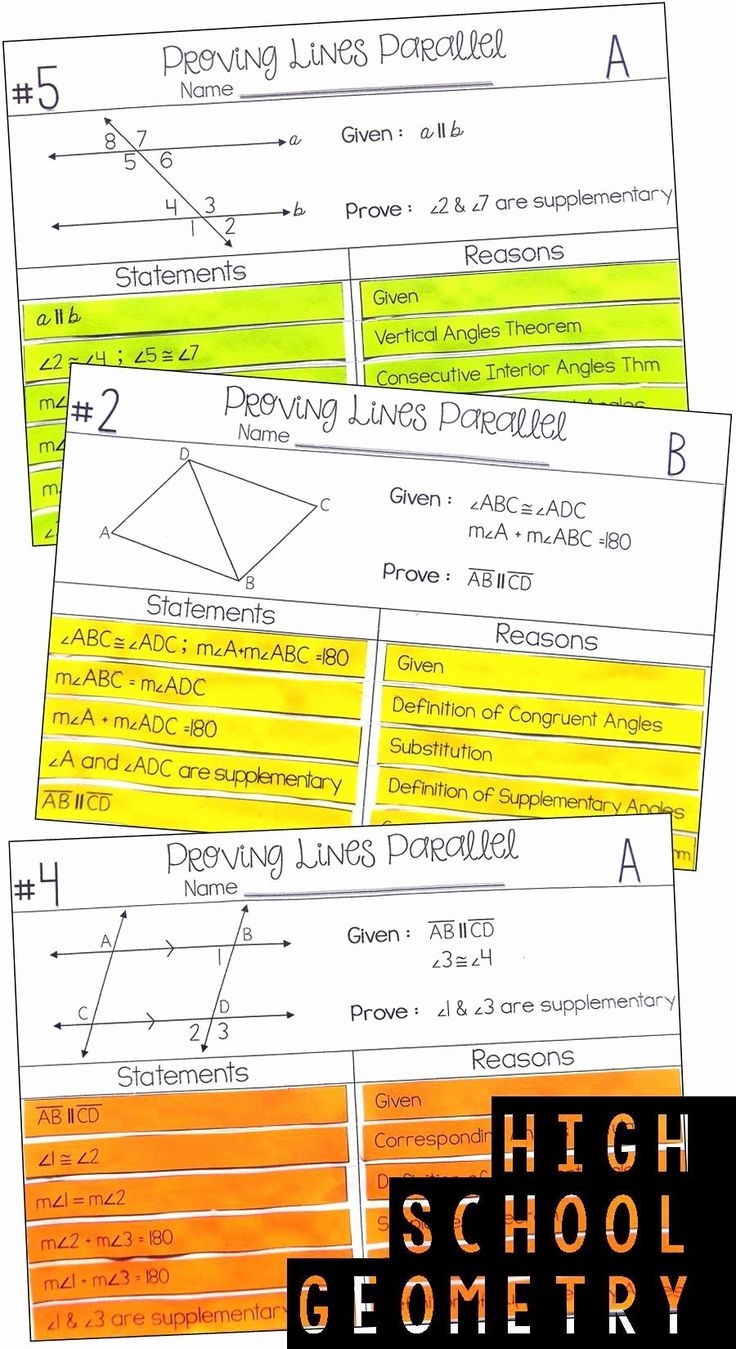 #5
Proving Lines Parallel
A
Name
8 7
5 6
a
4 3
1 2
b
Given : a ∥ b
Prove : ∠2 & ∠7 are supplementary
Statements
Reasons
a ∥ b
Given
∠2 ≅ ∠4 ; ∠5 ≅ ∠7
Vertical Angles Theorem
m∠
Consecutive Interior Angles Thm
m∠
Angles
m
∠
#2
Proving Lines Parallel
B
Name
D
C
A
B
Given : ∠ABC ≅ ∠ADC
m∠A + m∠ABC =180
Prove : AB ∥ CD
Statements
Reasons
∠ABC ≅ ∠ADC ; m∠A+m∠ABC =180
Given
m∠ABC = m∠ADC
Definition of Congruent Angles
m∠A + m∠ADC =180
Substitution
∠A and ∠ADC are supplementary
Definition of Supplementary Angles
AB ∥ CD
#4
Proving Lines Parallel
A
Name
A
B
1
C
D
2 3
Given : AB ∥ CD
∠3 ≅ ∠4
Prove : ∠1 & ∠3 are supplementary
Statements
Reasons
AB ∥ CD
Given
∠1 ≅ ∠2
Correspondin
m∠1 = m∠2
m∠2 + m∠3 = 180
m∠1 + m∠3 = 180
∠1 & ∠3 are supplementar
HIGH
SCHOOL
GEOMETRY